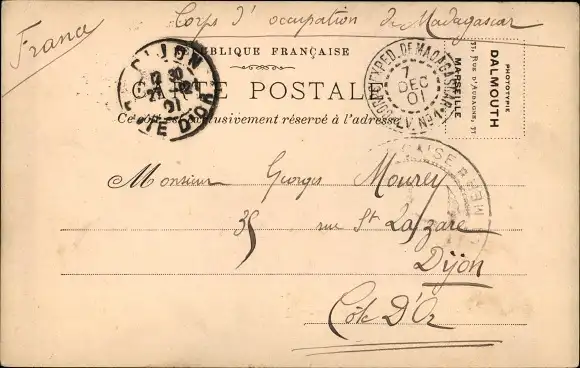 Corps d'occupation de Madagascar
Franca
RÉPUBLIQUE FRANÇAISE
CARTE POSTALE
Ce côté est exclusivement réservé à l'adresse
DIJON
12 30
27 12
01
CÔTE D'OR
CORPS EXPED. DE MADAGASCAR
7
DEC
01
LV. No 1
PHOTOTYPIE
DALMOUTH
MARSEILLE
Monsieur Georges Mourey
35 rue St Lazare
Dijon
Côte D'Or